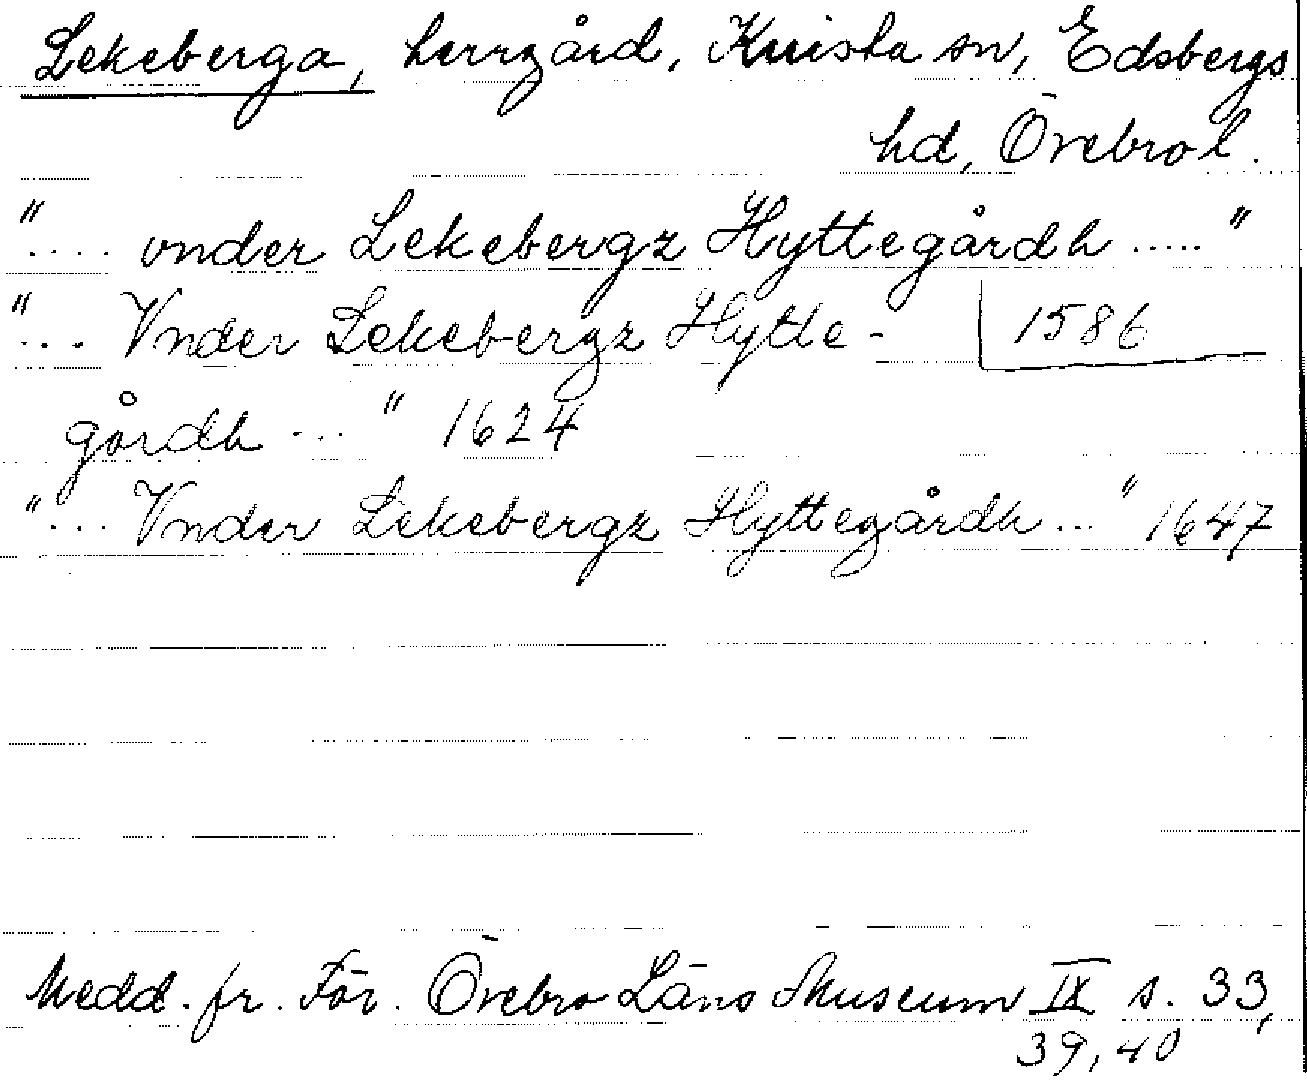 Lekeberga, herrgård, Knista sn, Edsbergs
hd, Örebro l.
".... vnder Lekebergz Hyttegårdh ....."
"... Vnder Lekebergz Hytte- 1586
gårdh ..." 1624
"... Vnder Lekebergz Hyttegårdh ..." 1647
Medd. fr. För. Örebro Läns Museum IX s. 33,
39, 40